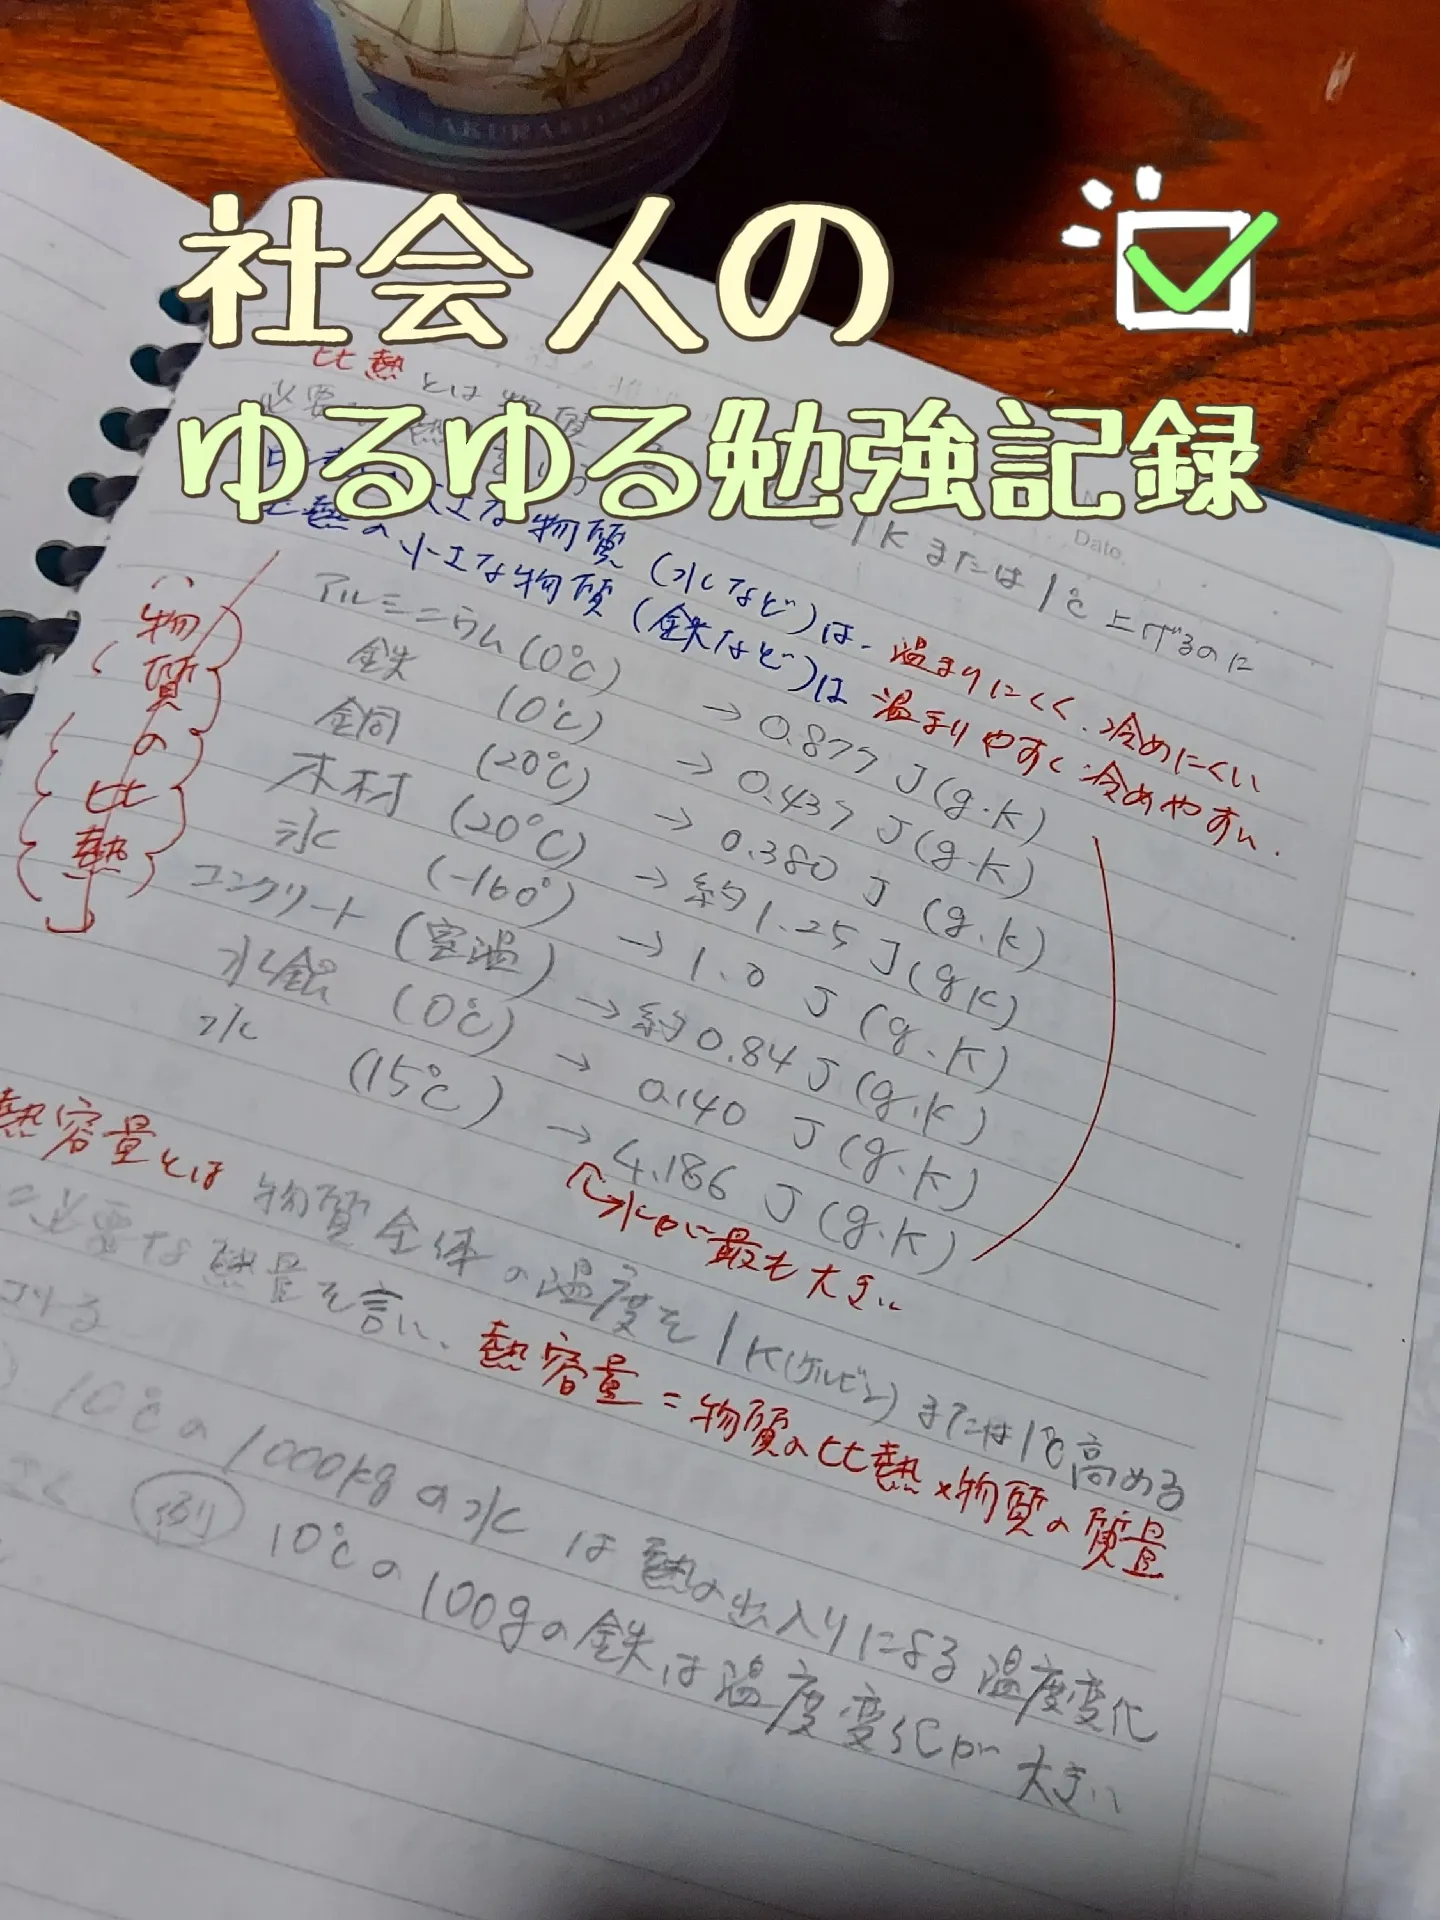 社会人の
ゆるゆる勉強記録
Date
比熱とは物質
1Kまたは1℃上げるのに
必要な熱
物質(水など)は、温まりにくく、冷めにくい
比熱の小さな物質(鉄など)は温まりやすく冷めやすい.
物質の比熱
アルミニウム(0℃) → 0.877 J(g・K)
鉄 (0℃) → 0.437 J(g・K)
銅 (20℃) → 0.380 J(g.K)
木材 (20℃) → 約1.25 J(gK)
氷 (-160°) → 1.0 J(g.K)
コンクリート(室温) → 約0.84 J(g.K)
水銀 (0℃) → 0.140 J(g.K)
水 (15℃) → 4.186 J(g.K)
水が最も大きい
熱容量とは物質全体の温度を1K(ケルビン)または1℃高める
に必要な熱量を言い、熱容量=物質の比熱×物質の質量
10℃の1000kgの水は熱の出入りによる温度変化
例 10℃の100gの鉄は温度変化が大きい